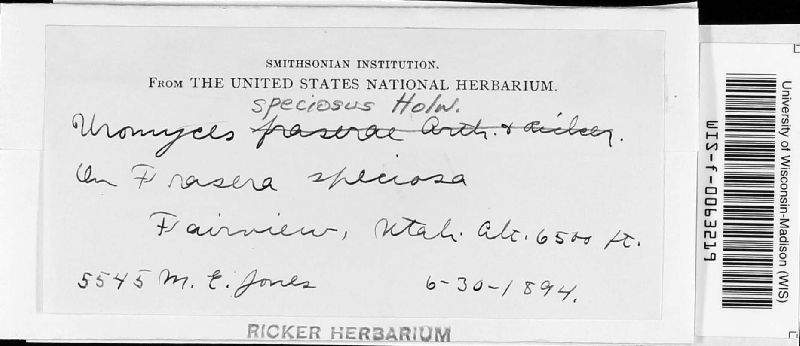 SMITHSONIAN INSTITUTION.
FROM THE UNITED STATES NATIONAL HERBARIUM.
speciosus Holw.
Uromyces fraserae Arth. & Ricker.
On Frasera speciosa
Fairview, Utah. Alt. 6500 ft.
5545 M. E. Jones 6-30-1894.
RICKER HERBARIUM
University of Wisconsin-Madison (WIS)
WIS-f-0063219